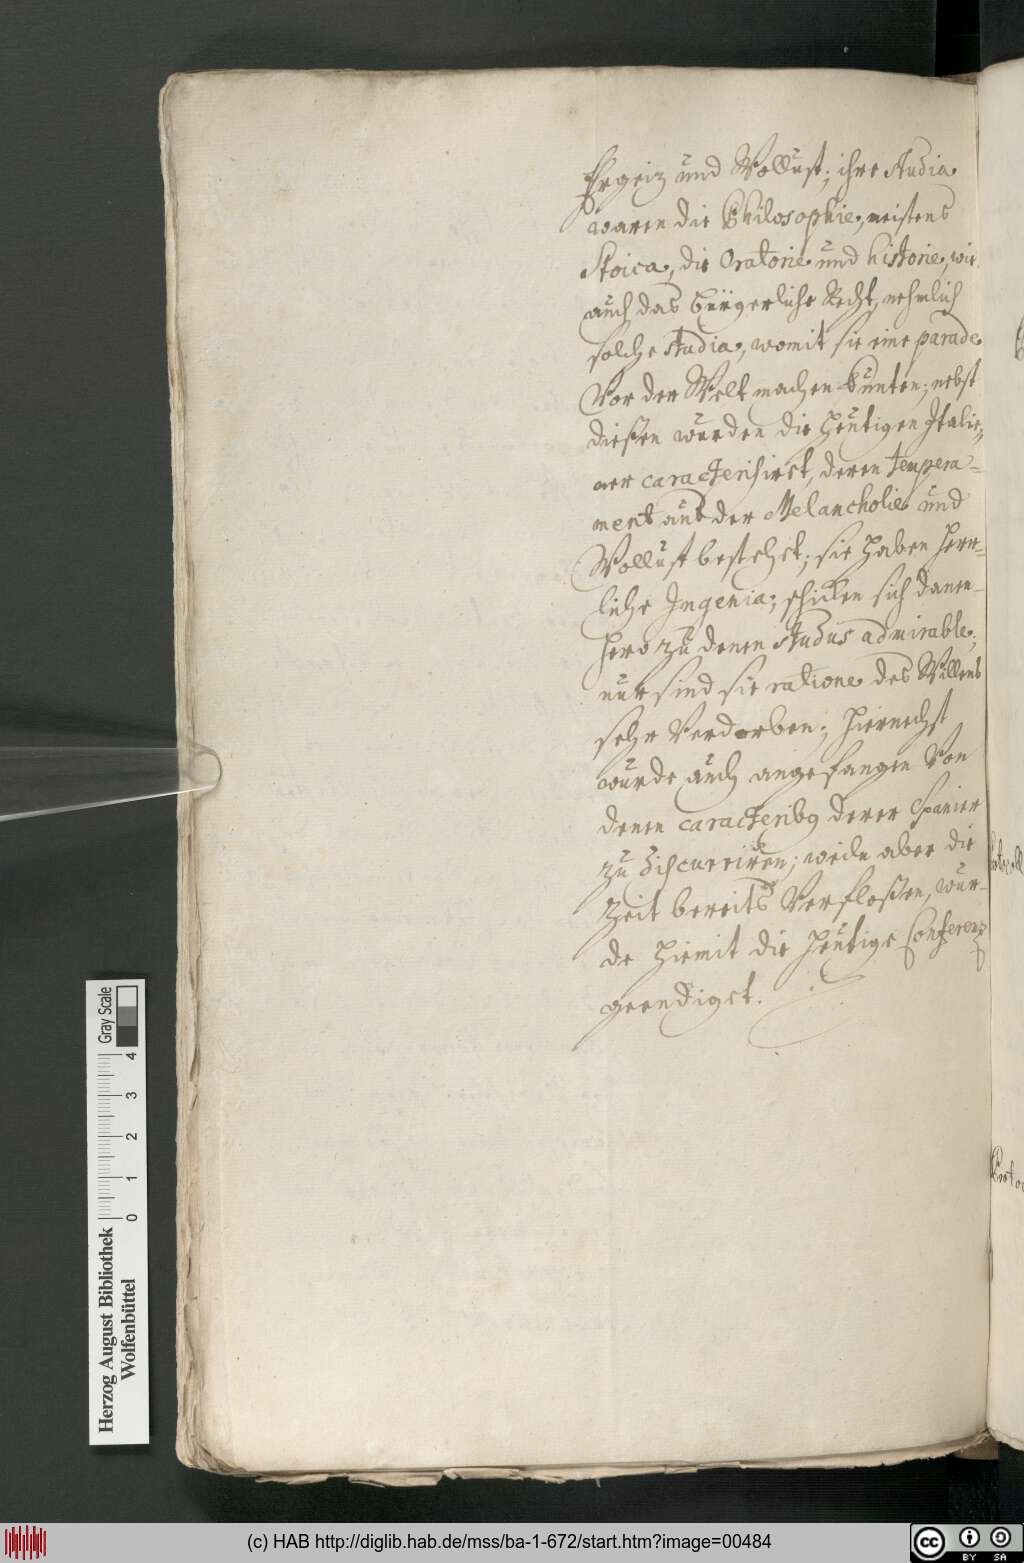 Ehrgeiz und Wollust; ihre studia
waren die Philosophie, meistens
Stoica, die Oratorie und historie, wie
auch das bürgerliche Recht, nehmlich
solche studia, womit sie eine parade
Vor der Welt machen kunten; nebst
dießen wurden die heutigen Italie=
ner caracterisiret, deren tempera=
ment aus der Melancholie und
Wollust bestehet; sie haben herr=
liche Ingenia; schicken sich danen=
hero zu denen studiis admirable,
nur sind sie ratione des Willens
sehr Verdorben; hiernechst
wurde auch angefangen Von
denen caracteribq derer Spanier
zu discurriren; weiln aber die
Zeit bereits Verfloßen, wur=
de hiemit die heutige Conferenz
geendiget.
Herzog August Bibliothek
Wolfenbüttel
0 1 2 3 4
Gray Scale
(c) HAB http://diglib.hab.de/mss/ba-1-672/start.htm?image=00484
cc BY SA